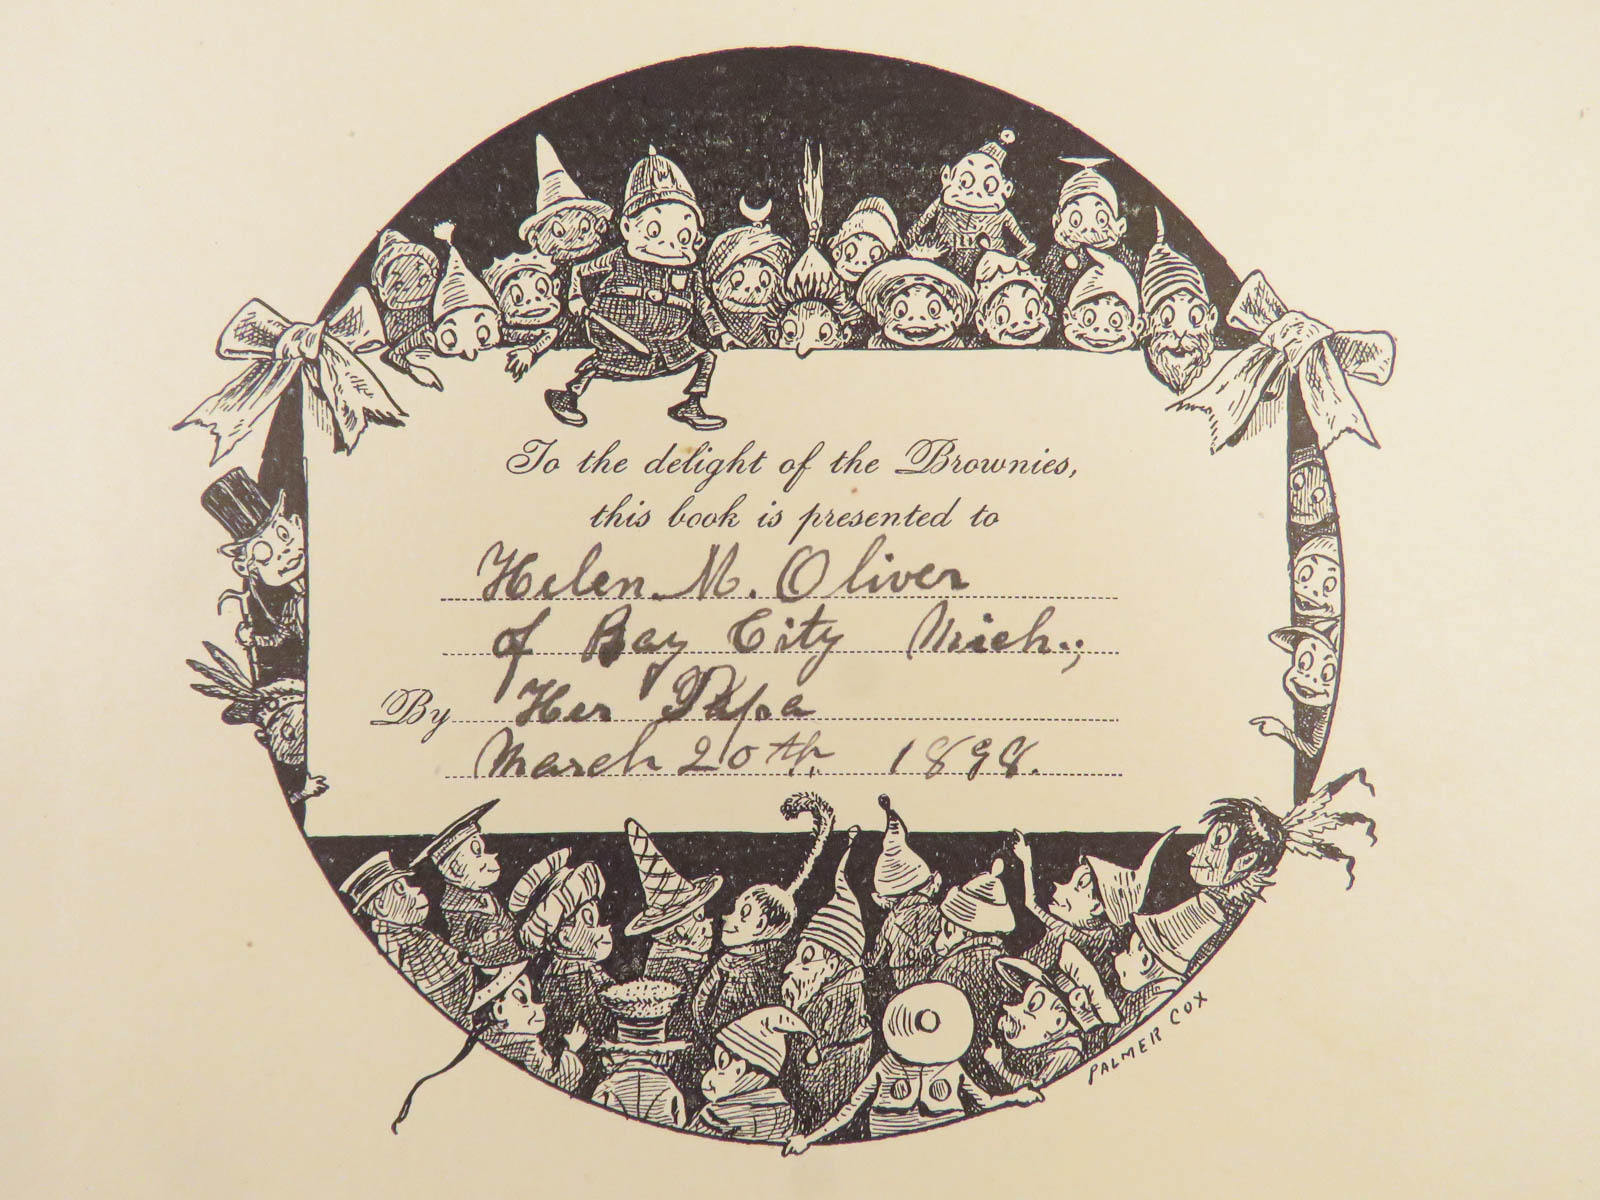 To the delight of the Brownies,
this book is presented to
Helen M. Oliver
of Bay City Mich.;
By Her Papa
March 20th, 1898.
PALMER COX